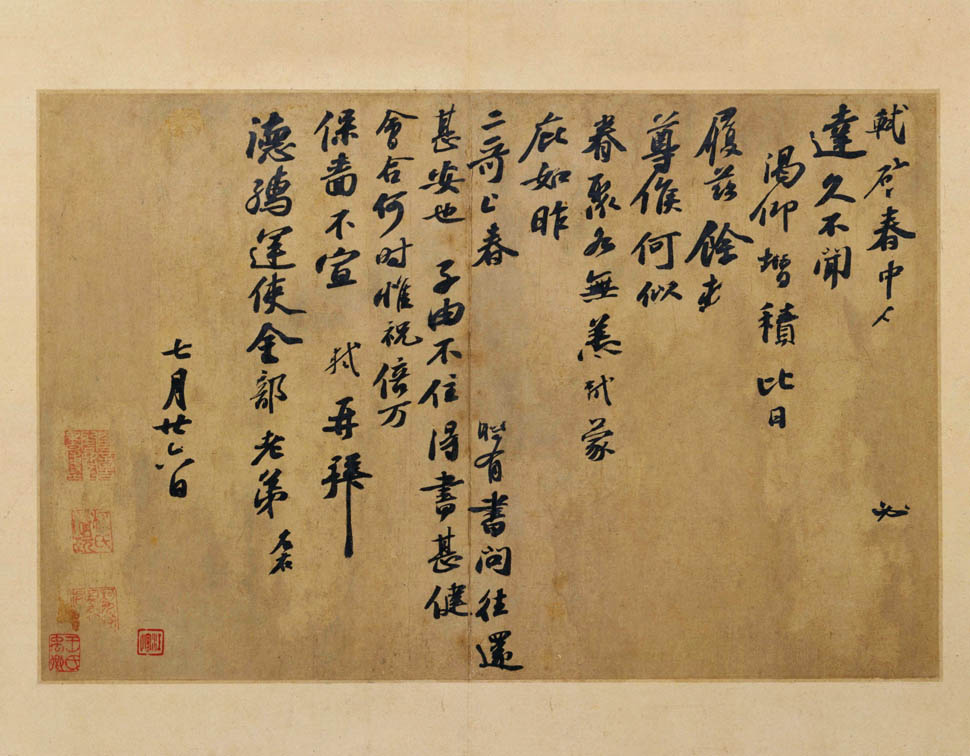 軾啓春中人 必
達久不聞
渴仰增積比日
履茲餘
尊候何似
眷聚各無恙軾蒙
庇如昨
二哥上春 時有書問往還
甚安也 子由不住得書甚健
會合何時惟祝倍万
保嗇不宣 軾 再拜
德孺運使金部老弟
七月廿六日